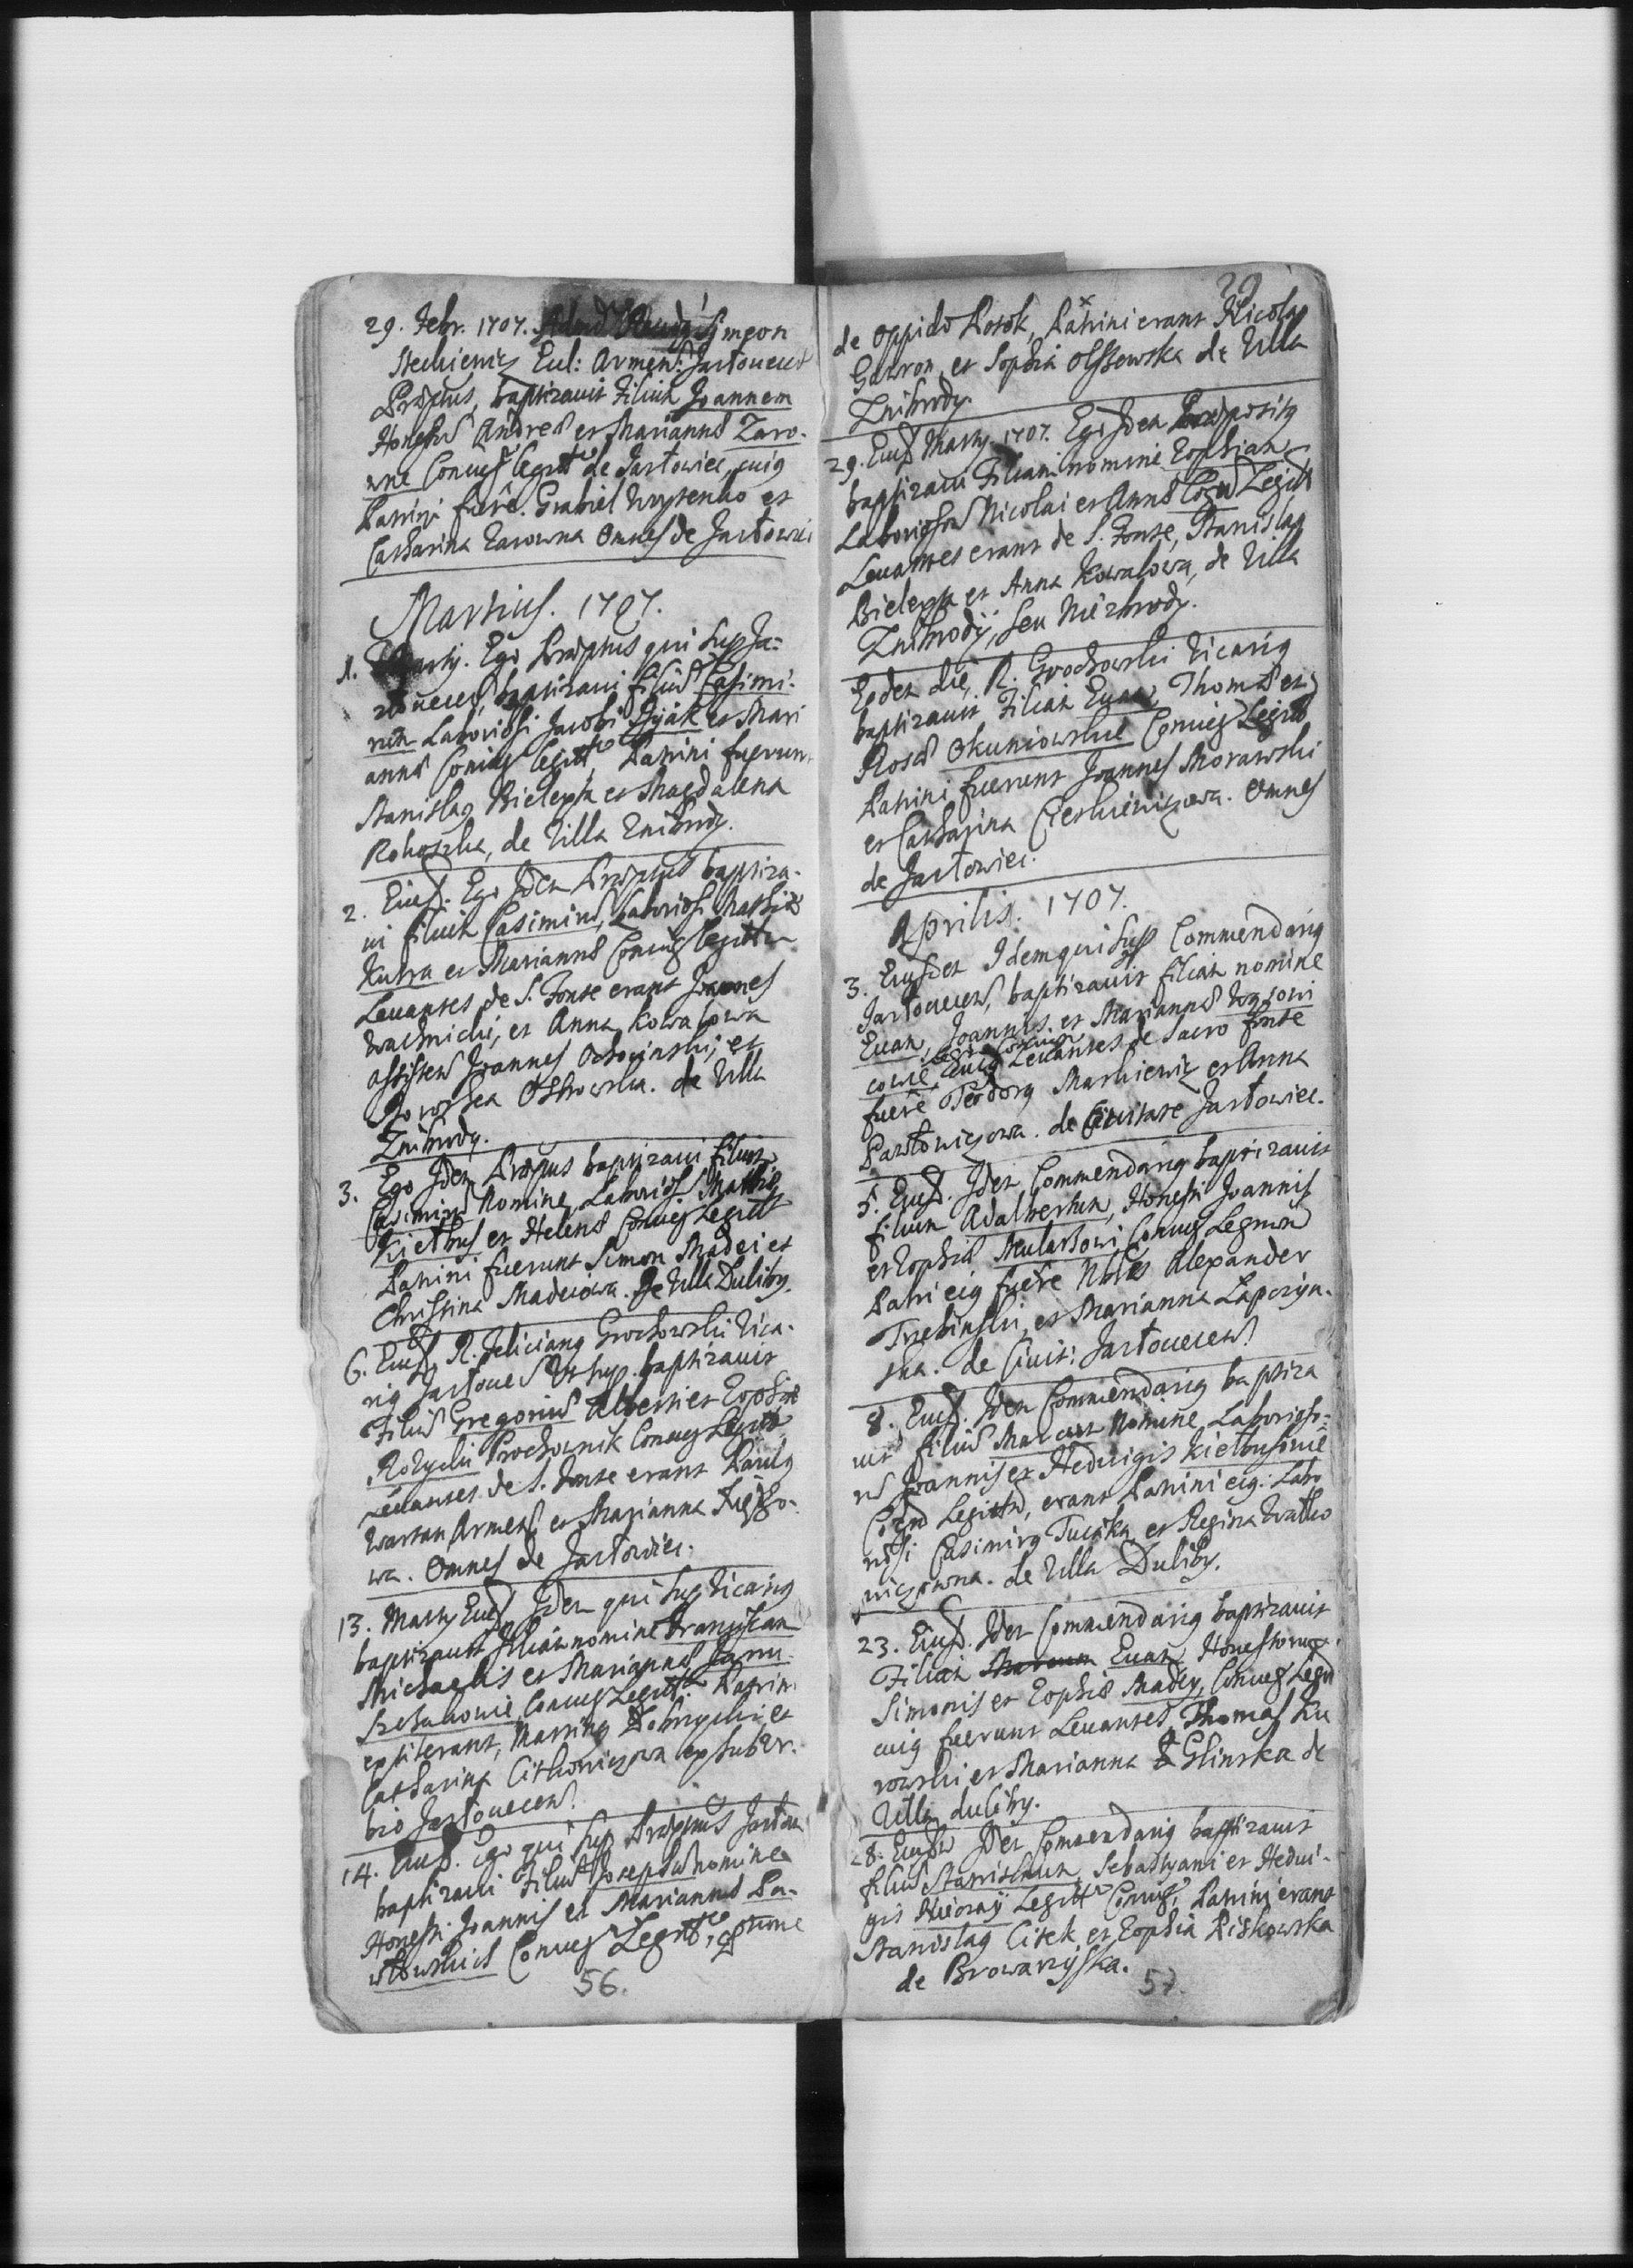 29. Febr. 1707. Admd Rnudg Simeon
Steckiewicz Eccl: Armen: Jasłoviecen
Præptus, baptizavit Filium Joannem
Honestor Andreæ et Mariannæ Zaro-
wne Coniug legitt de Jasłowiec, cuig
Patrini fuerê. Gabriel et
Catharina Zarowna Omnes de Jasłowiec
Martius. 1707.
1. Martij. Ego Præptus qui sup Ja-
słoviecen, baptizavi filiu Casimi-
rum Laboriosi Jacobi et Mari
annæ Coniug legitt Patrini fuerunt
Stanislag Bielezta et Magdalena
Rohoszka, de Villa Znibrody.
2. Eiusd. Ego Idem Præptus baptiza-
vi filium Casimiru, Laboriosi Mathiæ
Kutra et Mariannæ Coniug legittor
Levantes de S. Fonte erant Joannes
Wachnicki, et Anna Kowalowa
assisten Joannes Ochocinski, et
Dorothea Ostrowska. de Villa
Znibrody.
3. Ego Idem Præptus baptizavi filium
Casimiru Nomine, Laborios Mathiæ
Kiełbus et Helenæ Coniug Legitt
Patrini fuerunt Simon Madei et
Christina Madeiowa. De Villa Duliby.
6. Eiusd. R. Feliciang Grochowski Vica-
rig Jasłovien Ut sup. baptizavit
Filiu Gregoriu Alberti et Zophiæ
Rozycki Prochownik Coniug Legitt,
Levantes de S. Fonte erant Paulg
Wartan Armen et Marianna
wa. Omnes de Jasłowiec.
13. Martij Eiusd. Idem qui sup Vicarig
baptizavit filiam nomine Franciscam
Michaelis et Mariannæ Janu-
szewskowie, Coniug Legitt. Patrini
extiterant, Marting Dobrzycki et
Catharina Citkowiczowa ex subur-
bio Jasłoviecen.
14. Eiusd. Ego qui sup Præptus Jasłov
baptizavi Filiu Josephu nomine
Honesti Joannis et Mariannæ Pa-
włowskich Coniug Legitt,
56.
29
de Oppido Potok, Patrini erant Nicolag
Gawron, et Sophia Olszewska de Villa
Znibrody.
29. Eiusd Martij 1707. Ego Idem Præpositg
baptizavi Filiam nomine Zophiam
Laboriosor Nicolai et Annæ Legitt
Levantes erant de S. Fonte, Stanislag
Bielezta et Anna Kowalowa, de Villa
Znibrody, seu Niezbrody.
Eodem die, R. Grochowski Vicarig
baptizavit Filiam Evam, Thomæ et
Rosæ Okuniowskie Coniug Legitt
Patrini fuerunt Joannes Morawski
et Catharina Cieskiewiczowa. Omnes
de Jasłowiec.
Aprilis. 1707.
3. Eiusdem Idem qui sup Commendarig
Jasłoviecen, baptizavit filiam nomine
Evam, Joannis, et Mariannæ
cowie, Cuig Levantes de Sacro fonte
fuerê Teodorg Markiewicz et Anna
Pawłowiczowa. de Civitate Jasłowiec.
5. Eiusd. Idem Commendarig baptizavit
filium Adalbertum, Honesti Joannis
et Zophiæ Mularzowi Coniug Legitim
Patri eig fuere Nobles Alexander
Trebinski, et Marianna Lapczyn-
ska. de Civit: Jasłoviecen.
8. Eiusd. Idem Commendarig baptiza
vit filiu Marcum Nomine, Laborioso-
ru Joannis et Hedvigis Kiełbusowie
Legittor, erant Patrini eig: Labo
riosi Casimirg Tucika et Regina Watko
wiczowna. de Villa Duliby.
23. Eiusd. Idem Commendarig baptizavit
Filiam Evam Honestorum
Simonis et Zophiæ Madey, Coniug Legitt
cuig fuerunt Levantes, Thomas Ku
rowski et Marianna Glinska de
Villa duliby.
28. Eiusdem Idem Commendarig baptizavit
filiu Stanislaum, Sebastyani et Hedvi-
gis Legitt Coniug, Patrini erant
Stanislag Citek et Zophia Piskowska
de Browaryska.
57.